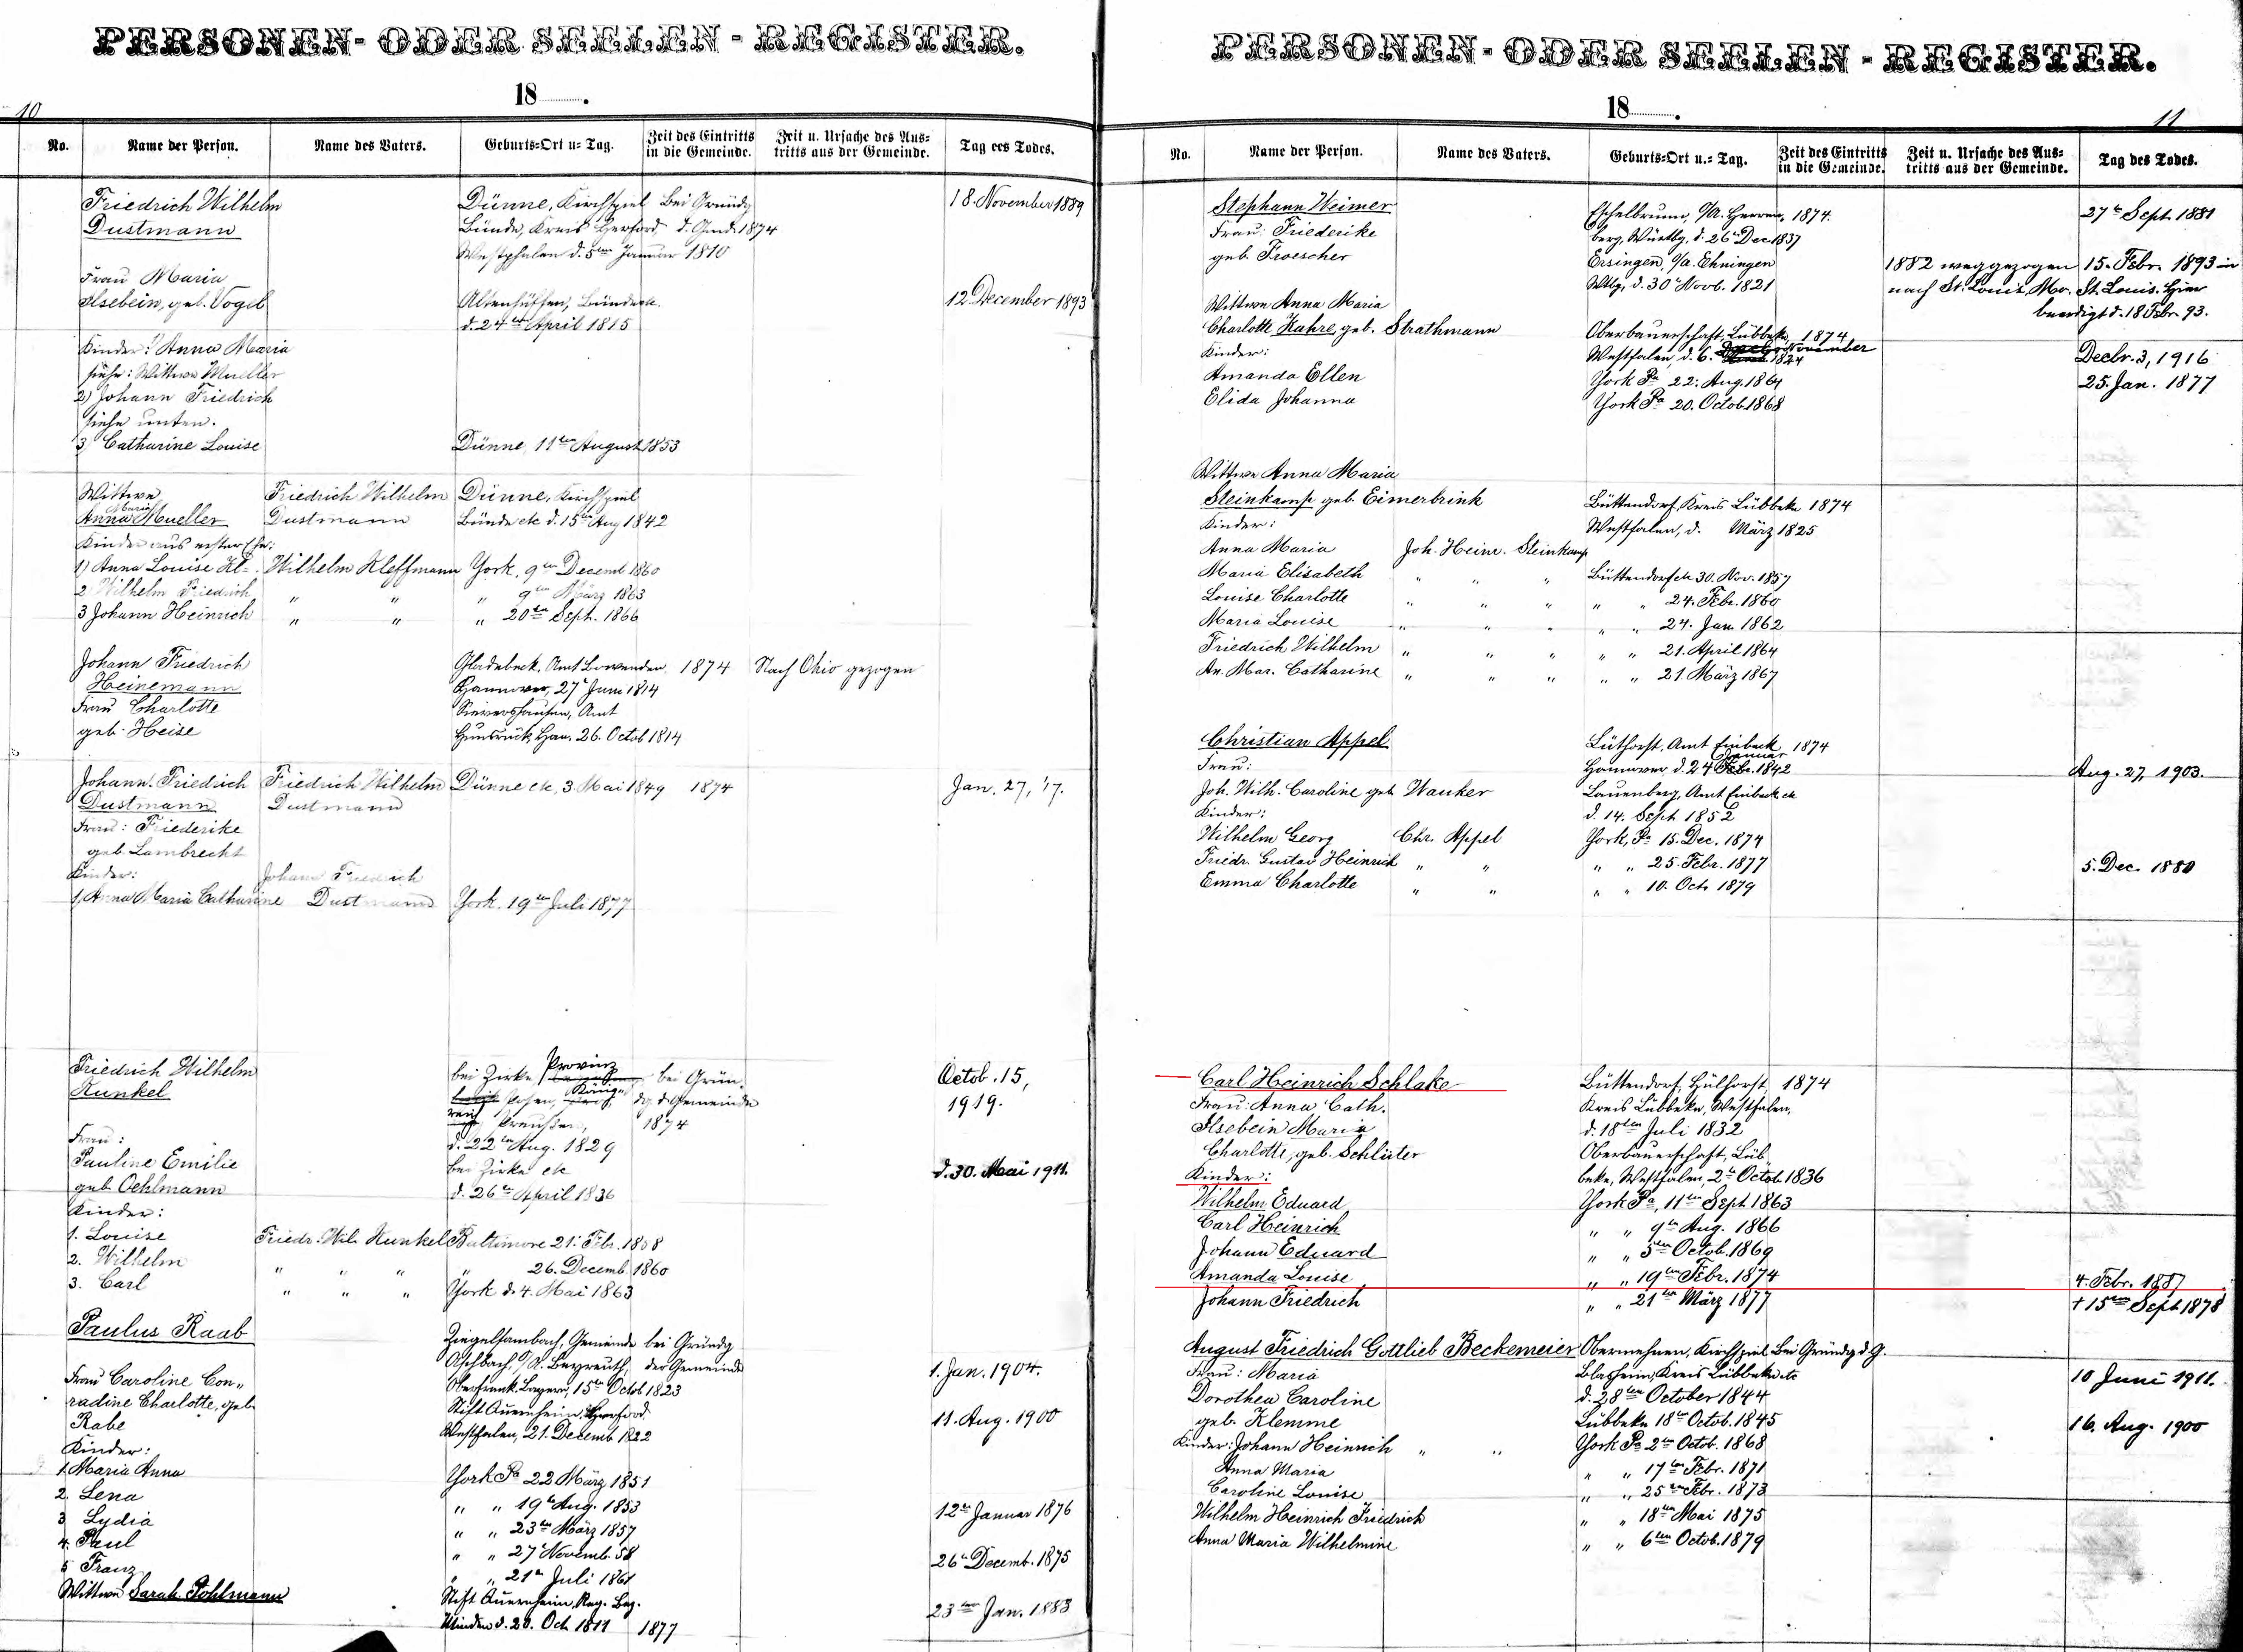 PERSONEN- ODER SEELEN - REGISTER.
18 .
10
No. Name der Person. Name des Vaters. Geburts=Ort u= Tag. Zeit des Eintritts in die Gemeinde. Zeit u. Ursache des Aus= tritts aus der Gemeinde. Tag des Todes.
Friedrich Wilhelm Dünne, Kirchspiel Bei Gründg 18. November 1889
Dustmann Bünde, Kreis Herford d. Gmd. 1874
Westphalen d. 5ten Januar 1810
Frau Maria
Ilsebein, geb. Vogel Altenhüffen, Bünde etc. 12 December 1893
d. 24ten April 1815
Kinder: Anna Maria
siehe: Wittwe Mueller
2) Johann Friedrich
siehe unten.
3) Catharine Louise Dünne, 11ten August 1853
Wittwe Friedrich Wilhelm Dünne, Kirchspiel
Anna Maria Mueller Dustmann Bünde etc d. 15ten Aug 1842
Kinder aus erster Ehe:
1) Anna Louise Kl. Wilhelm Kleffmann York, 9ten Decemb 1860
2 Wilhelm Friedrich " " " 9ten März 1863
3 Johann Heinrich " " " 20ten Sept. 1866
Johann Friedrich Gladebeck, Amt Bovenden, 1874 Nach Ohio gezogen
Heinemann Hannover, 27t Juni 1814
Frau Charlotte Sievershausen, Amt
geb. Heise Hunsrück, Han. 26. Octob 1814
Johann. Friedrich Friedrich Wilhelm Dünne etc, 3. Mai 1849 1874 Jan. 27, '17.
Dustmann Dustmann
Frau: Friederike
geb. Lambrecht
Kinder: Johann Friedrich
1, Anna Maria Catharine Dustmann York. 19ten Juli 1877
Friedrich Wilhelm bei Zirke, Provinz bei Grün- Octob. 15,
Kunkel Posen, König- dg d. Gemeinde 1919.
reich Preußen, 1874
d. 22ten Aug. 1829
Frau:
Pauline Emilie bei Zirke etc d. 30. Mai 1911.
geb. Oehlmann d. 26ten April 1836
Kinder:
1. Louise Friedr. Wil. Kunkel Baltimore 21. Febr. 1858
2. Wilhelm " " " " 26. Decemb. 1860
3. Carl " " " York d. 4. Mai 1863
Paulus Raab Ziegelsambach, Gemeinde bei Gründg
Aschbach, O/A. Beyreuth, der Gemeinde 1. Jan. 1904.
Frau Caroline Con- Oberfrank. Bayern, 15ten Octob 1823
radine Charlotte, geb. Stift Quernheim, Herford
Rabe Westfalen, 21. Decemb 1822 11. Aug. 1900
Kinder:
1. Maria Anna York Pa 22 März 1851
2. Lena " " 19t Aug. 1853
3 Lydia " " 23ten März 1857 12ten Januar 1876
4. Paul " " 27t Novemb. 58
5 Franz " " 21ten Juli 1861 26ten Decemb. 1875
Wittwe Sarah Pohlmann Stift Quernheim, Reg. Bez.
Minden d. 20. Oct. 1811 1877 23ten Jan. 1883
PERSONEN- ODER SEELEN - REGISTER.
18 .
11
No. Name der Person. Name des Vaters. Geburts=Ort u.= Tag. Zeit des Eintritts in die Gemeinde. Zeit u. Ursache des Aus= tritts aus der Gemeinde. Tag des Todes.
Stephann Weimer Eschelbrunn, O/A. Herren- 1874. 27ten Sept. 1881
Frau: Friederike berg, Württbg, d. 26ten Dec 1837
geb. Froescher Ersingen, O/A. Ehningen 1882 weggezogen 15. Febr. 1893 in
Wttbg, d. 30t Novb. 1821 nach St. Louis, Mo. St. Louis. Hier
Wittwe Anna Maria beerdigt d. 18 Febr. 93.
Charlotte Hahre, geb. Strathmann Oberbauerschaft, Lübbeke, 1874
Kinder: Westfalen, d. 6. November 1824 Decbr. 3, 1916
Amanda Ellen York Pa 22. Aug. 1864 25. Jan. 1877
Elida Johanna York Pa 20. Octob 1868
Wittwe Anna Maria
Steinkamp geb. Eimerbrink Büttendorf, Kreis Lübbeke 1874
Kinder: Westfalen, d. März 1825
Anna Maria Joh. Heinr. Steinkamp
Maria Elisabeth " " " Büttendorf etc 30. Nov. 1857
Louise Charlotte " " " " " 24. Febr. 1860
Maria Louise " " " " " 24. Jan. 1862
Friedrich Wilhelm " " " " " 21. April 1864
An. Mar. Catharine " " " " " 21. März 1867
Christian Appel Lüthorst, Amt Einbeck 1874
Frau: Hannover d. 24 Januar Febr. 1842 Aug. 27, 1903.
Joh. Wilh. Caroline geb Wauker Lauenberg, Amt Einbeck etc
Kinder: d. 14. Sept 1852
Wilhelm Georg Chr. Appel York, Pa 15. Dec. 1874
Friedr. Gustav Heinrich " " " " 25. Febr. 1877 5. Dec. 1880
Emma Charlotte " " " " 10. Oct. 1879
Carl Heinrich Schlake Büttendorf, Hülhorst, 1874
Frau: Anna Cath. Kreis Lübbeke, Westfalen,
Ilsebein Maria d. 18ten Juli 1832
Charlotte, geb. Schlüter Oberbauerschaft, Lüb-
Kinder: beke, Westfalen, 2t Octob. 1836
Wilhelm Eduard York Pa, 11ten Sept 1863
Carl Heinrich " " 9ten Aug. 1866
Johann Eduard " " 5ten Octob. 1869
Amanda Louise " " 19ten Febr. 1874 4. Febr. 1887
Johann Friedrich " " 21ten März 1877 † 15ten Sept 1878
August Friedrich Gottlieb Beckemeier Obermehnen, Kirchspiel Bei Gründg d. G.
Frau: Maria Blasheim, Kreis Lübbeke etc 10 Juni 1911.
Dorothea Caroline d. 28ten October 1844
geb. Klemme Lübbeke 18ten Octob. 1845 16. Aug. 1900
Kinder: Johann Heinrich " " York Pa 2ten Octob. 1868
Anna Maria " " 17ten Febr. 1871
Caroline Louise " " 25ten Febr. 1873
Wilhelm Heinrich Friedrich " " 18ten Mai 1875
Anna Maria Wilhelmine " " 6ten Octob. 1879